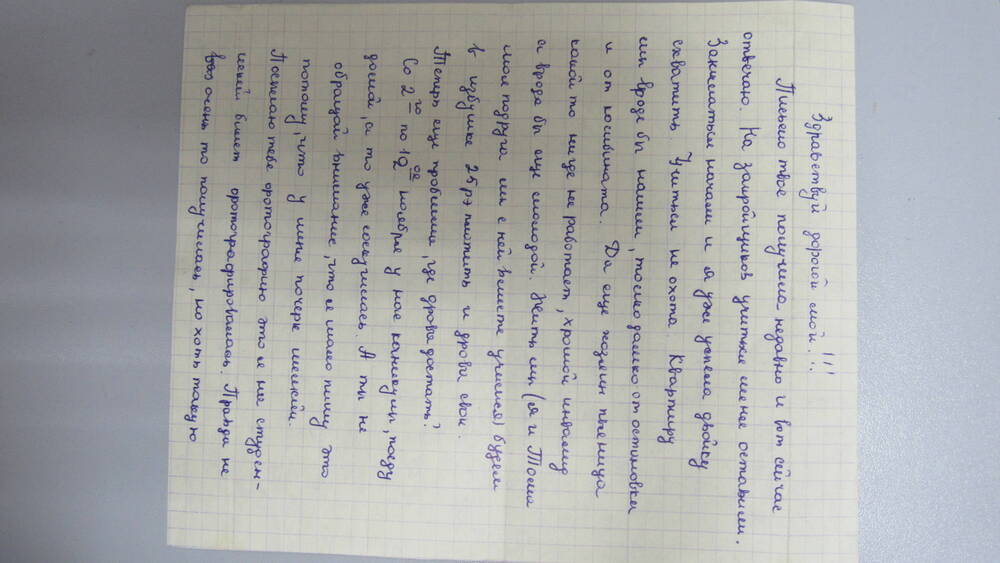 Здравствуй дорогой мой!..!!!
Письмо твое получила недавно и вот сейчас
отвечаю. На закройщиков учиться меня оставили.
Заниматься начали и я уже успела двойку
схватить. Учиться не охота. Квартиру
мы вроде бы нашли, только далеко от остановки
и от комбината. Да еще хозяин пьяница
какой то нигде не работает, хромой инвалид
а вроде бы еще молодой. Жить мы (я и Тоска
моя подруга мы с ней вместе учимся) будем
в избушке 25рэ платить и дрова свои.
Теперь еще проблема, где дрова достать?
Со 2го по 12ое ноября у нас каникулы, поеду
домой, а то уже соскучилась. А ты не
обращай внимание, что я мало пишу это
потому, что у меня почерк мелкий.
Посылаю тебе фотографию это я на студен-
ческий билет фотографировалась. Правда не
очень то получилась, но хоть такую